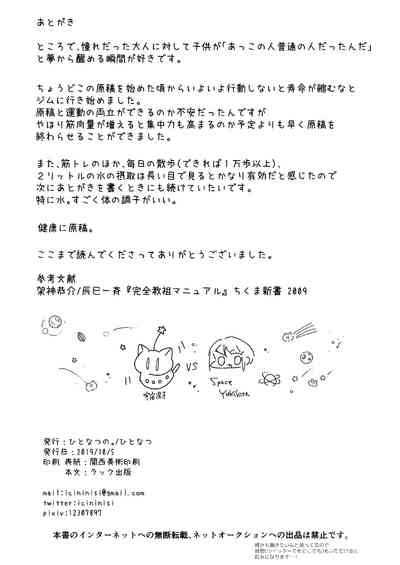 あとがき
ところで、憧れだった大人に対して子供が「あっこの人普通の人だったんだ」
と夢から醒める瞬間が好きです。
ちょうどこの原稿を始めた頃からいよいよ行動しないと寿命が縮むなと
ジムに行き始めました。
原稿と運動の両立ができるのか不安だったんですが
やはり筋肉量が増えると集中力も高まるのか予定よりも早く原稿を
終わらせることができました。
また、筋トレのほか、毎日の散歩(できれば1万歩以上)、
2リットルの水の摂取は長い目で見るとかなり有効だと感じたので
次にあとがきを書くときにも続けていたいです。
特に水。すごく体の調子がいい。
健康に原稿。
ここまで読んでくださってありがとうございました。
参考文献
架神恭介/辰巳一斉『完全教祖マニュアル』ちくま新書 2009
VS
Space
発行:ひとなつの。/ひとなつ
発行日:2019/10/5
印刷 表紙:関西美術印刷
本文:ラック出版
mail:icininisi@gmail.com
twitter:icininisi
pixiv:12307897
本書のインターネットへの無断転載、ネットオークションへの出品は禁止です。